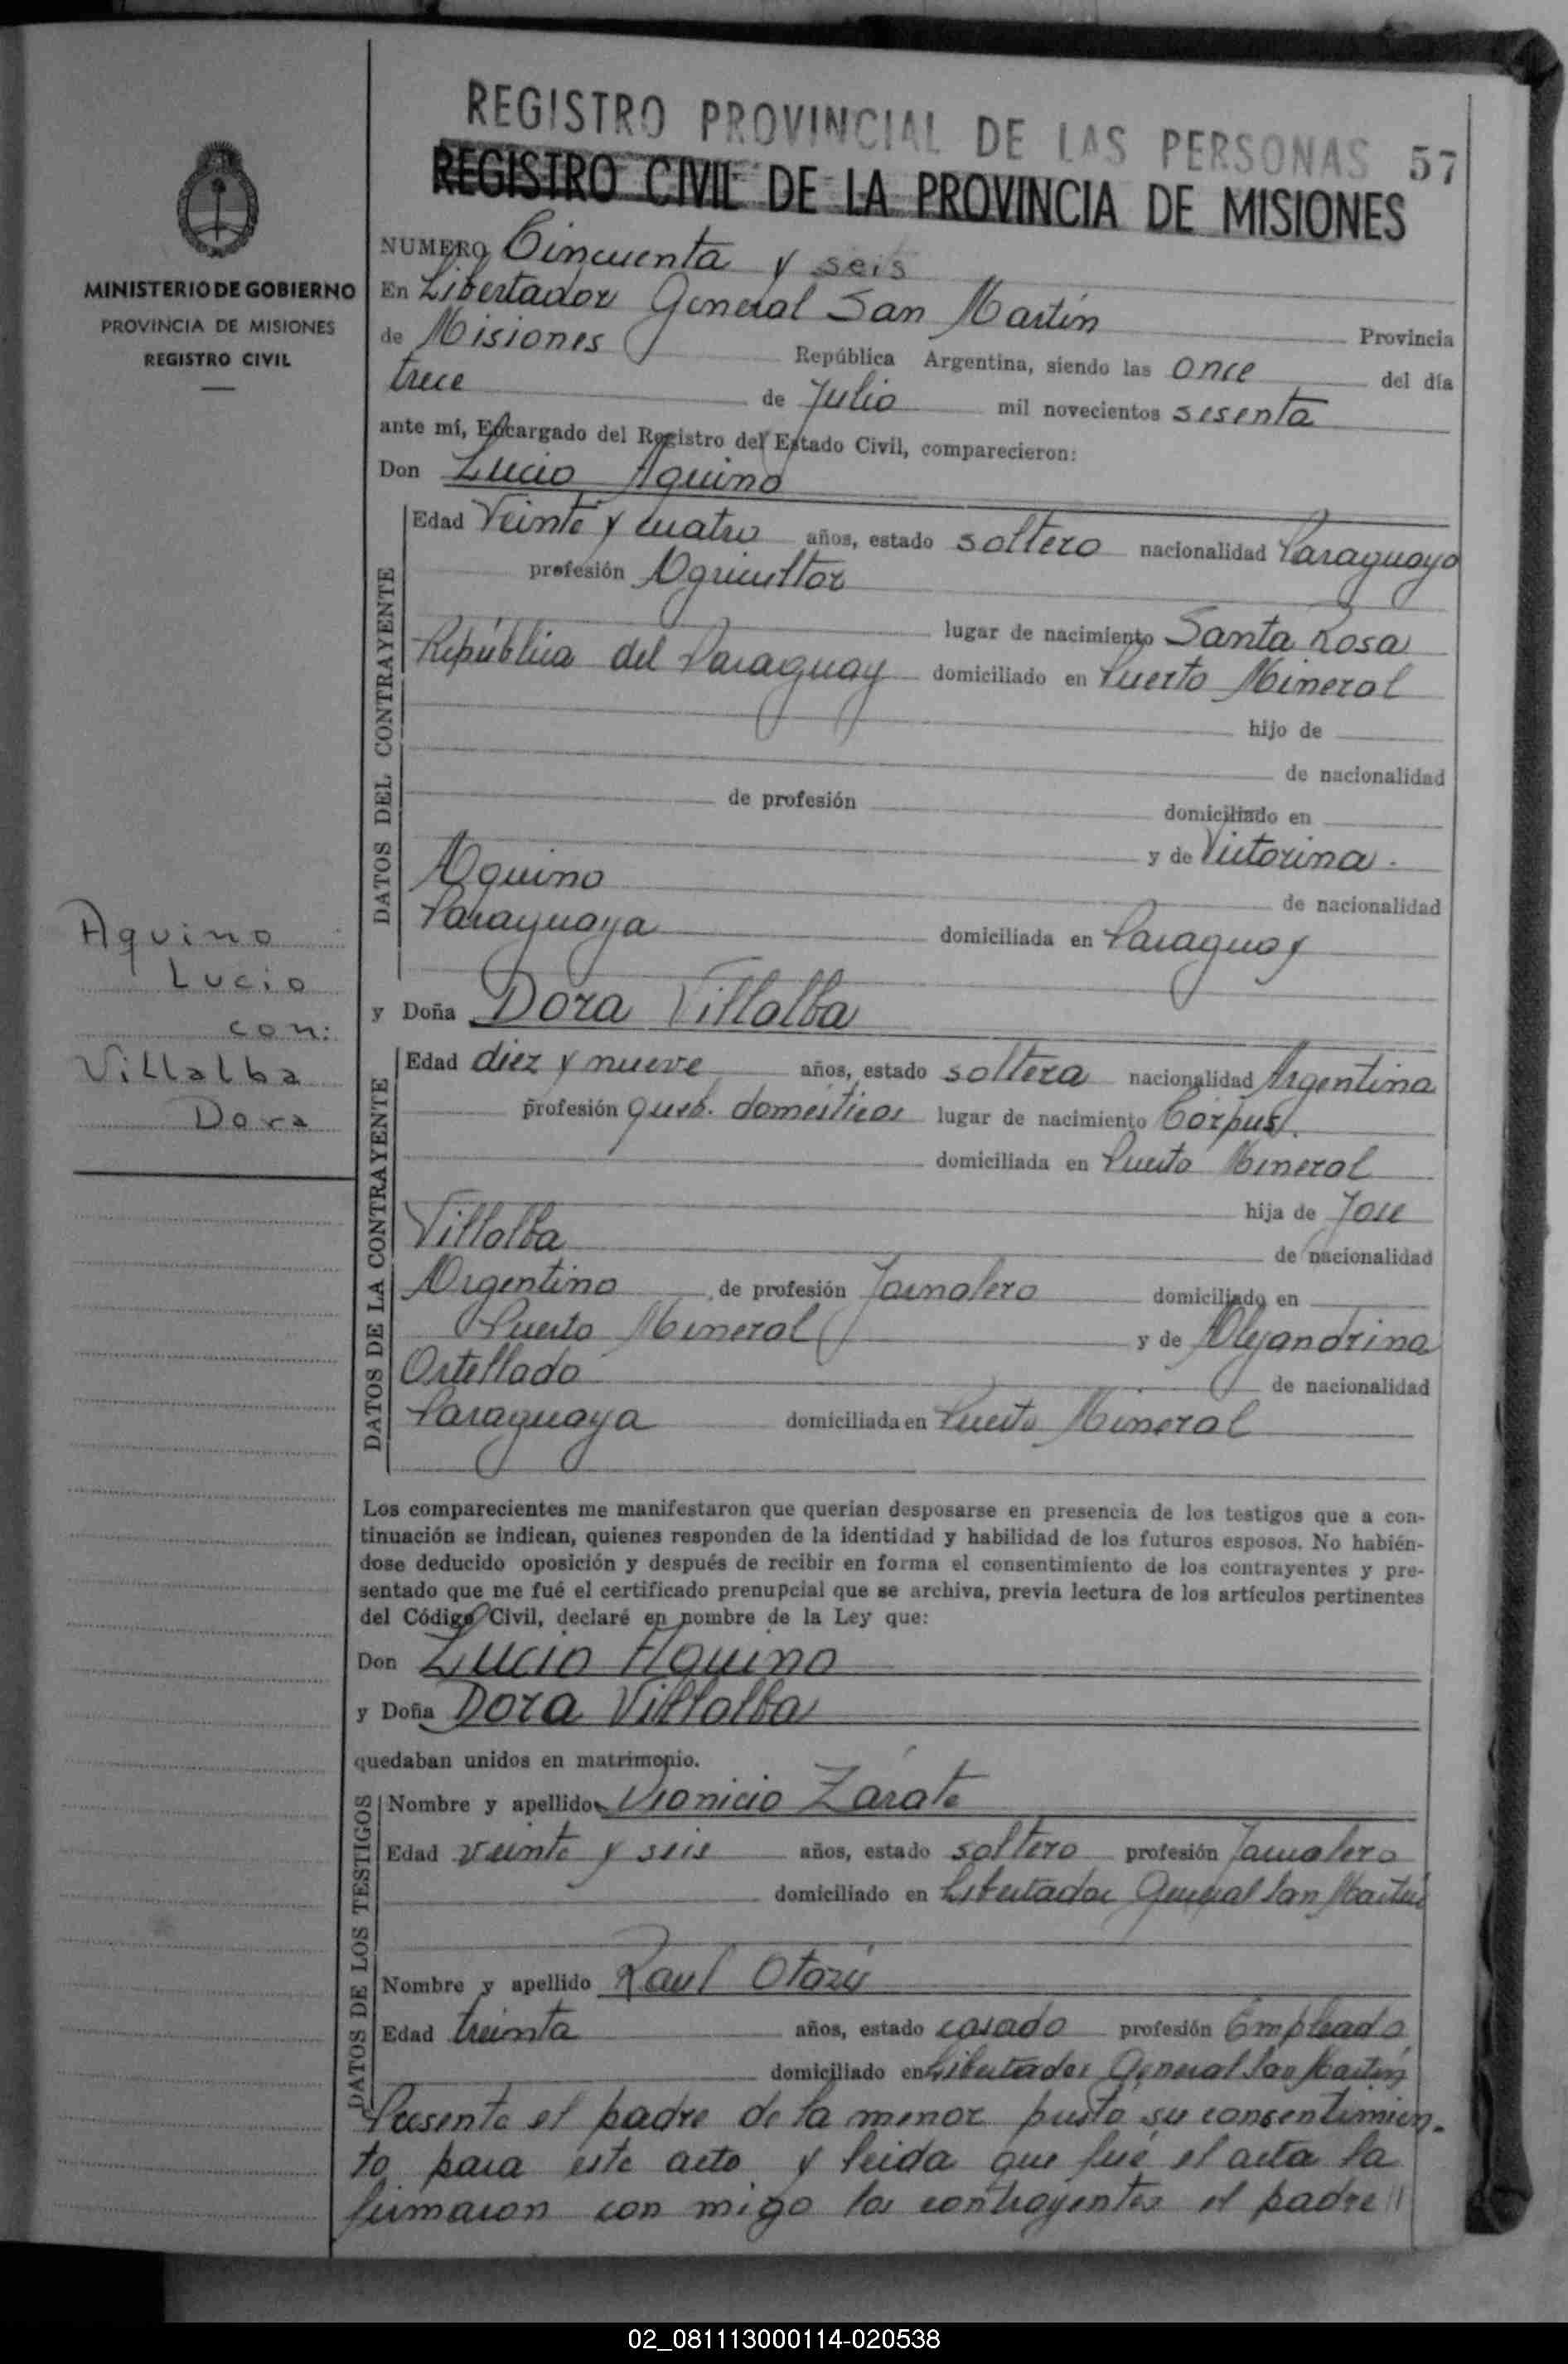 REGISTRO PROVINCIAL DE LAS PERSONAS 57
REGISTRO CIVIL DE LA PROVINCIA DE MISIONES
MINISTERIO DE GOBIERNO
PROVINCIA DE MISIONES
REGISTRO CIVIL
Aquino
Lucio
con:
Villalba
Dora
NUMERO Cincuenta y seis
En Libertador General San Martín Provincia
de Misiones República Argentina, siendo las once del día
trece de Julio mil novecientos sesenta
ante mí, Encargado del Registro del Estado Civil, comparecieron:
Don Lucio Aquino
DATOS DEL CONTRAYENTE
Edad Veinte y cuatro años, estado soltero nacionalidad Paraguayo
profesión Agricultor
lugar de nacimiento Santa Rosa
República del Paraguay domiciliado en Puerto Mineral
hijo de
de nacionalidad
de profesión domiciliado en
y de Victorina
Aquino de nacionalidad
Paraguaya domiciliada en Paraguay
y Doña Dora Villalba
DATOS DE LA CONTRAYENTE
Edad diez y nueve años, estado soltera nacionalidad Argentina
profesión queh. domésticos lugar de nacimiento Córpus.
domiciliada en Puerto Mineral
hija de José
Villalba de nacionalidad
Argentino de profesión Jornalero domiciliado en
Puerto Mineral y de Alejandrina
Ortellado de nacionalidad
Paraguaya domiciliada en Puerto Mineral
Los comparecientes me manifestaron que querian desposarse en presencia de los testigos que a con-
tinuación se indican, quienes responden de la identidad y habilidad de los futuros esposos. No habién-
dose deducido oposición y después de recibir en forma el consentimiento de los contrayentes y pre-
sentado que me fué el certificado prenupcial que se archiva, previa lectura de los artículos pertinentes
del Código Civil, declaré en nombre de la Ley que:
Don Lucio Aquino
y Doña Dora Villalba
quedaban unidos en matrimonio.
DATOS DE LOS TESTIGOS
Nombre y apellido Dionicio Zárate
Edad veinte y seis años, estado soltero profesión Jornalero
domiciliado en Libertador General San Martín
Nombre y apellido Raul Otazú
Edad treinta años, estado casado profesión Empleado
domiciliado en Libertador General San Martín
Presente el padre de la menor prestó su consentimien-
to para este acto y leida que fué el acta la
firmaron con migo los contrayentes el padre //
02_081113000114-020538